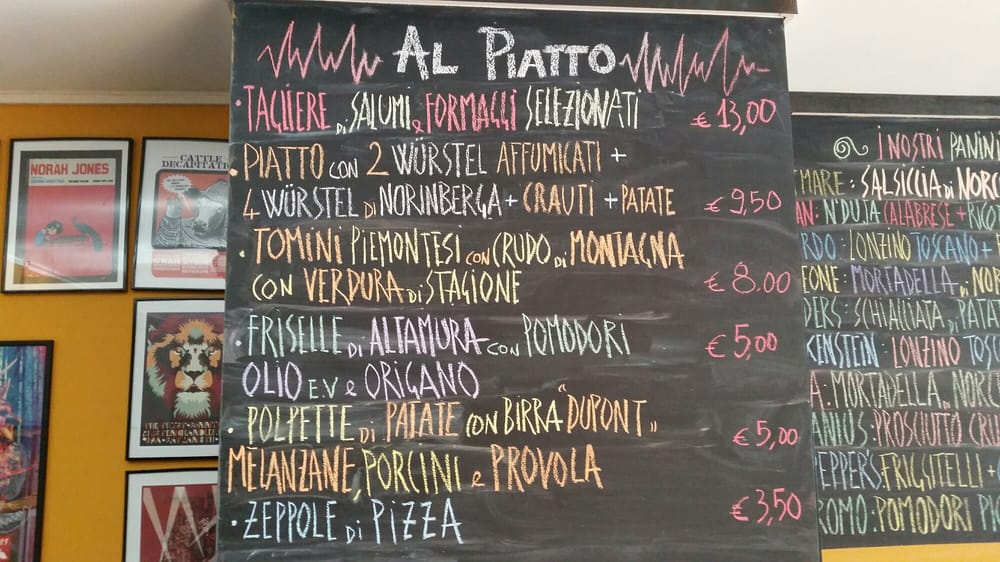 AL PIATTO
• TAGLIERE DI SALUMI e FORMAGGI SELEZIONATI € 13,00
PIATTO CON 2 WÜRSTEL AFFUMICATI +
4 WÜRSTEL DI NORINBERGA + CRAUTI + PATATE € 9,50
• TOMINI PIEMONTESI CON CRUDO DI MONTAGNA
CON VERDURA DI STAGIONE € 8.00
• FRISELLE DI ALTAMURA CON POMODORI € 5,00
OLIO E.V e ORIGANO
• POLPETTE DI PATATE CON BIRRA "DUPONT" € 5,00
MELANZANE, PORCINI e PROVOLA
• ZEPPOLE DI PIZZA € 3,50
I NOSTRI PANINI
MARE: SALSICCIA DI NORC
AN: N'DUJA CALABRESE + RICO
RDO: LONZINO TOSCANO +
EONE: MORTADELLA DI NOR
DERS: SCHIACCIATA DI PATAT
KENSTEIN: LONZINO TOSC
A: MORTADELLA DI NORC
ANIUS: PROSCIUTTO CRU
PEPPER'S FRIGGITELLI +
ROMO: POMODORI
NORAH JONES
CATTLE
DECAPITATION